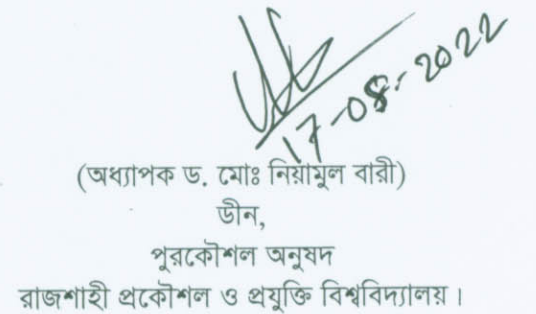 17-08-2022
(অধ্যাপক ড. মোঃ নিয়ামুল বারী)
ডীন,
পুরকৌশল অনুষদ
রাজশাহী প্রকৌশল ও প্রযুক্তি বিশ্ববিদ্যালয়।